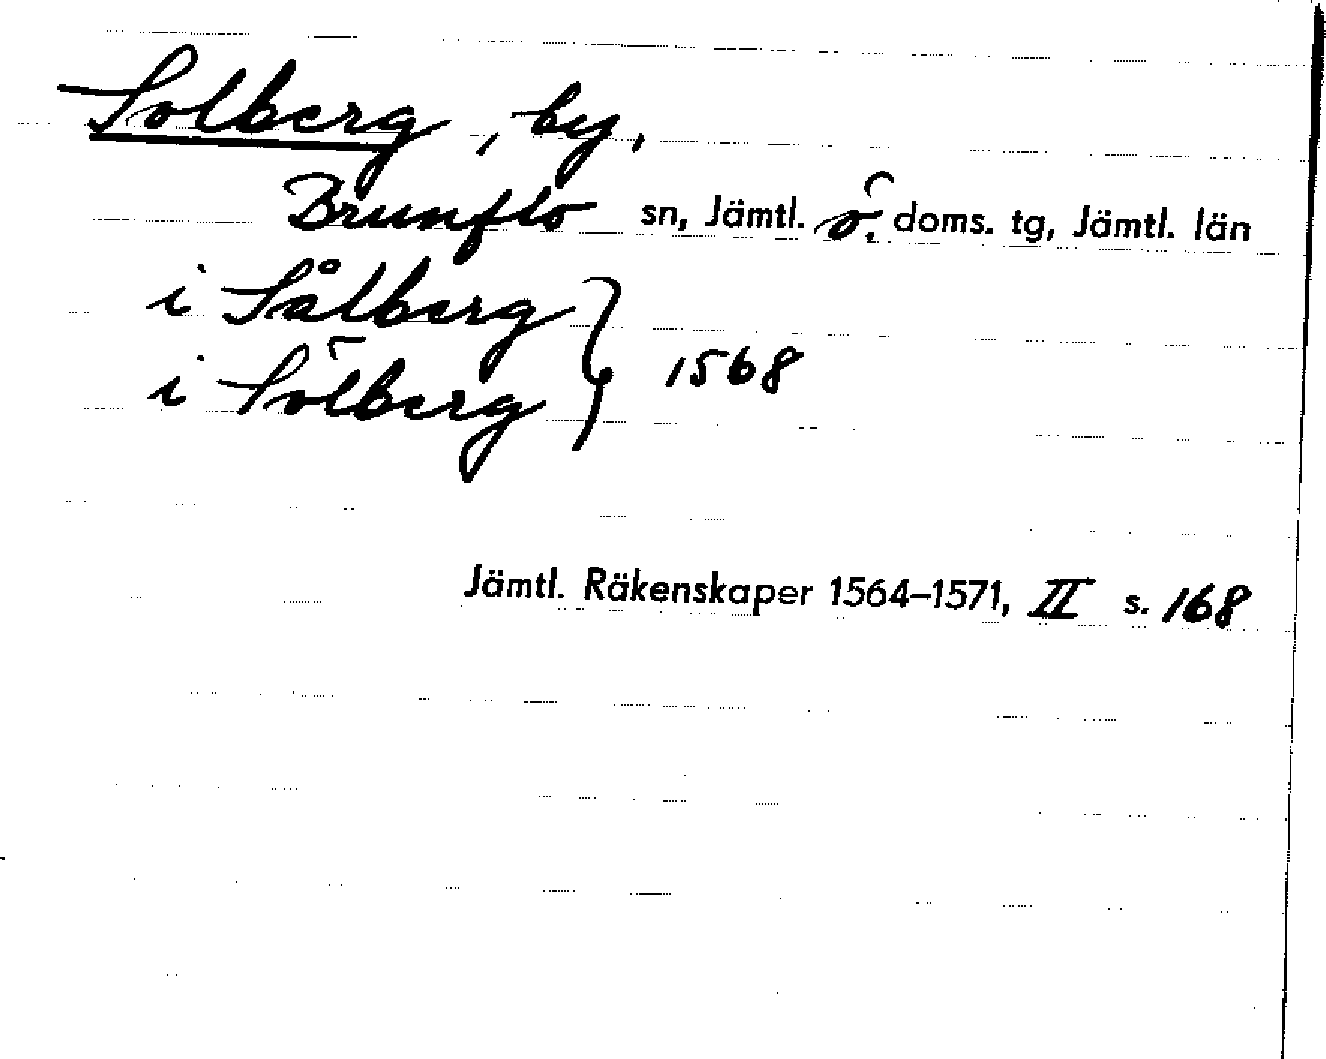 Solberg, by,
Brunflo sn, Jämtl. ö. doms. tg, Jämtl. län
i Sålberg
i Sölberg } 1568
Jämtl. Räkenskaper 1564–1571, II s. 168